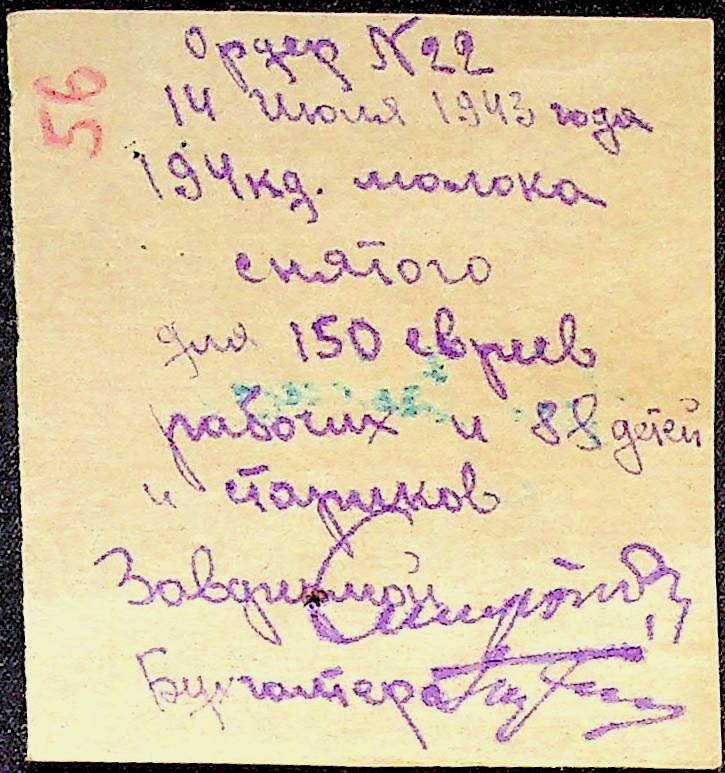 Ордер №22
56
14 июля 1943 года
194кд. молока
снятого
для 150 евреев
рабочих и 88 детей
и стариков
Смирнов
Бухгалтер